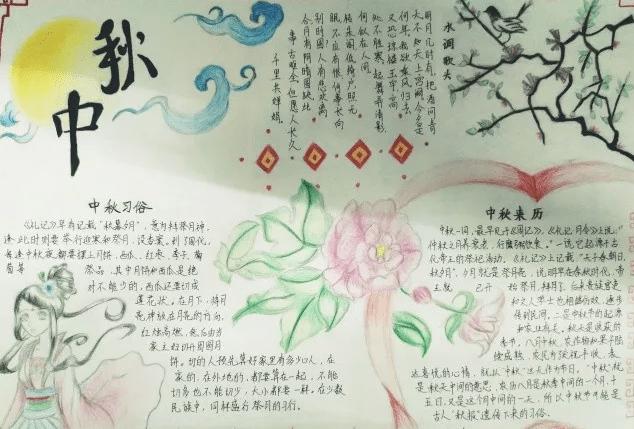 中秋
水调歌头
明月几时有,把酒问青
天。不知天上宫阙,今夕是
何年。我欲乘风归去,
又恐琼楼玉宇,高
处不胜寒。起舞弄清影,
何似在人间。
转朱阁,低绮户,照无
眠。不应有恨,何事长向
别时圆?人有悲欢离
合,月有阴晴圆缺,此
事古难全。但愿人长久,
千里共婵娟。
中秋习俗
《礼记》早有记载“秋暮夕月”,意为拜祭月神,
逢此时则要举行迎寒和祭月,设香案。到了周代,
每逢中秋夜都要摆上月饼、西瓜、红枣、李子、葡
萄等
祭品,其中月饼和西瓜是绝
对不能少的,西瓜还要切成
莲花状。在月下,将月
亮神放在月亮的方向,
红烛高燃,然后由当
家主妇切开团圆月
饼。切的人预先算好家里有多少口人,在
家的,在外地的,都要算在一起,不能
切多也不能切少,大小都要一样。在少数
民族中,同样盛行祭月的习行。
中秋来历
中秋一词,最早见于《周礼》。《礼记·月令》上说:“
仲秋之月养衰老,行糜粥饮食。”一说它起源于古
代帝王的祭祀活动。《礼记》上记载:“天子春朝日,
秋夕月”,夕月就是祭月亮,说明早在春秋时代,帝
王就 已开 始祭月、拜月了。后来贵族官吏
和文人学士也相继仿效,逐步
传到民间。二是中秋节的起源
和农业有关。秋天是收获的
季节。八月中秋,农作物和果子陆
续成熟,农民为庆祝丰收,表
达喜悦的心情,就以“中秋”这天作为节日。“中秋”就
是秋天中间的意思,农历八月是秋季中间的一个月,十
五日,又是这个月中间的一天,所以中秋节可能是
古人“秋报”遗传下来的习俗。